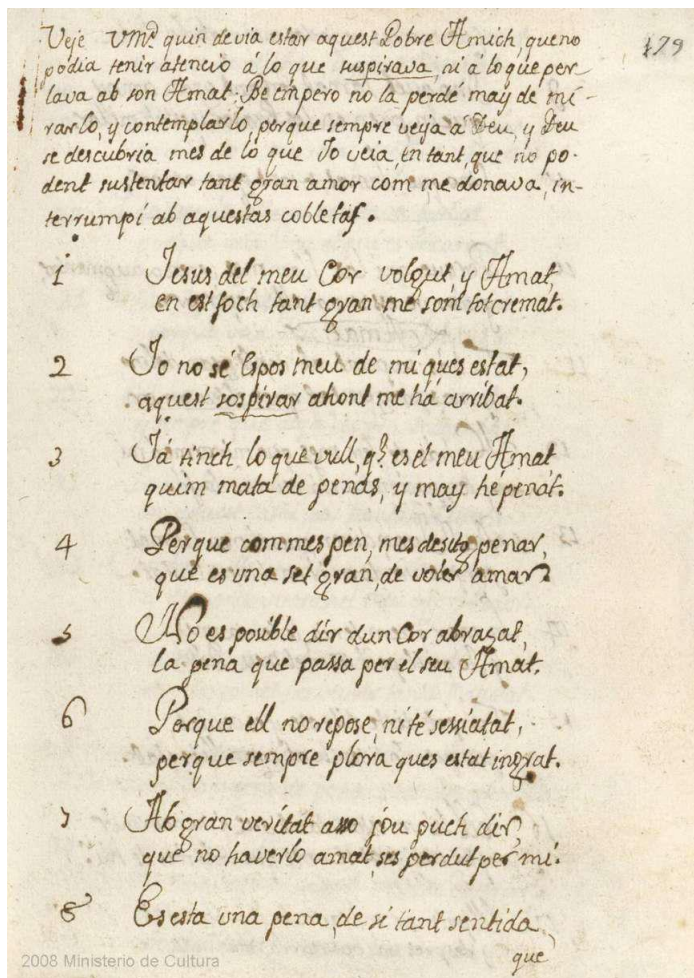 179
Veje Vmd quin devia estar aquest Pobre Amich, que no
podia tenir atencio á lo que suspirava, ni á lo que per
lava ab son Amat; Be empero no la perdé may de mi-
rarlo, y contemplarlo, perque sempre veya á Deu, y Deu
se descubria mes de lo que Jo veia, en tant, que no po-
dent sustentar tant gran amor com me donava, in-
terrumpí ab aquestas cobletas.
1 Jesus del meu Cor volgut, y Amat,
en est foch tant gran me som tot cremat.
2 Jo no sé Espos meu de mi ques estat,
aquest sospirar ahont me há arribat.
3 Já tinch lo que vull, q.e es el meu Amat
quim mata de penas, y may hé penat.
4 Perque com mes pen, mes desitg penar,
que es una set gran, de voler amar.
5 No es posible dir dun Cor abrazat,
la pena que passa per el seu Amat.
6 Perque ell no repose, ni té sessiatat,
perque sempre plora ques estat ingrat.
7 Ab gran veritat asso jou puch dir
que no haverlo amat, ses perdut per mi.
8 Es esta una pena, de si tant sentida
que
2008 Ministerio de Cultura